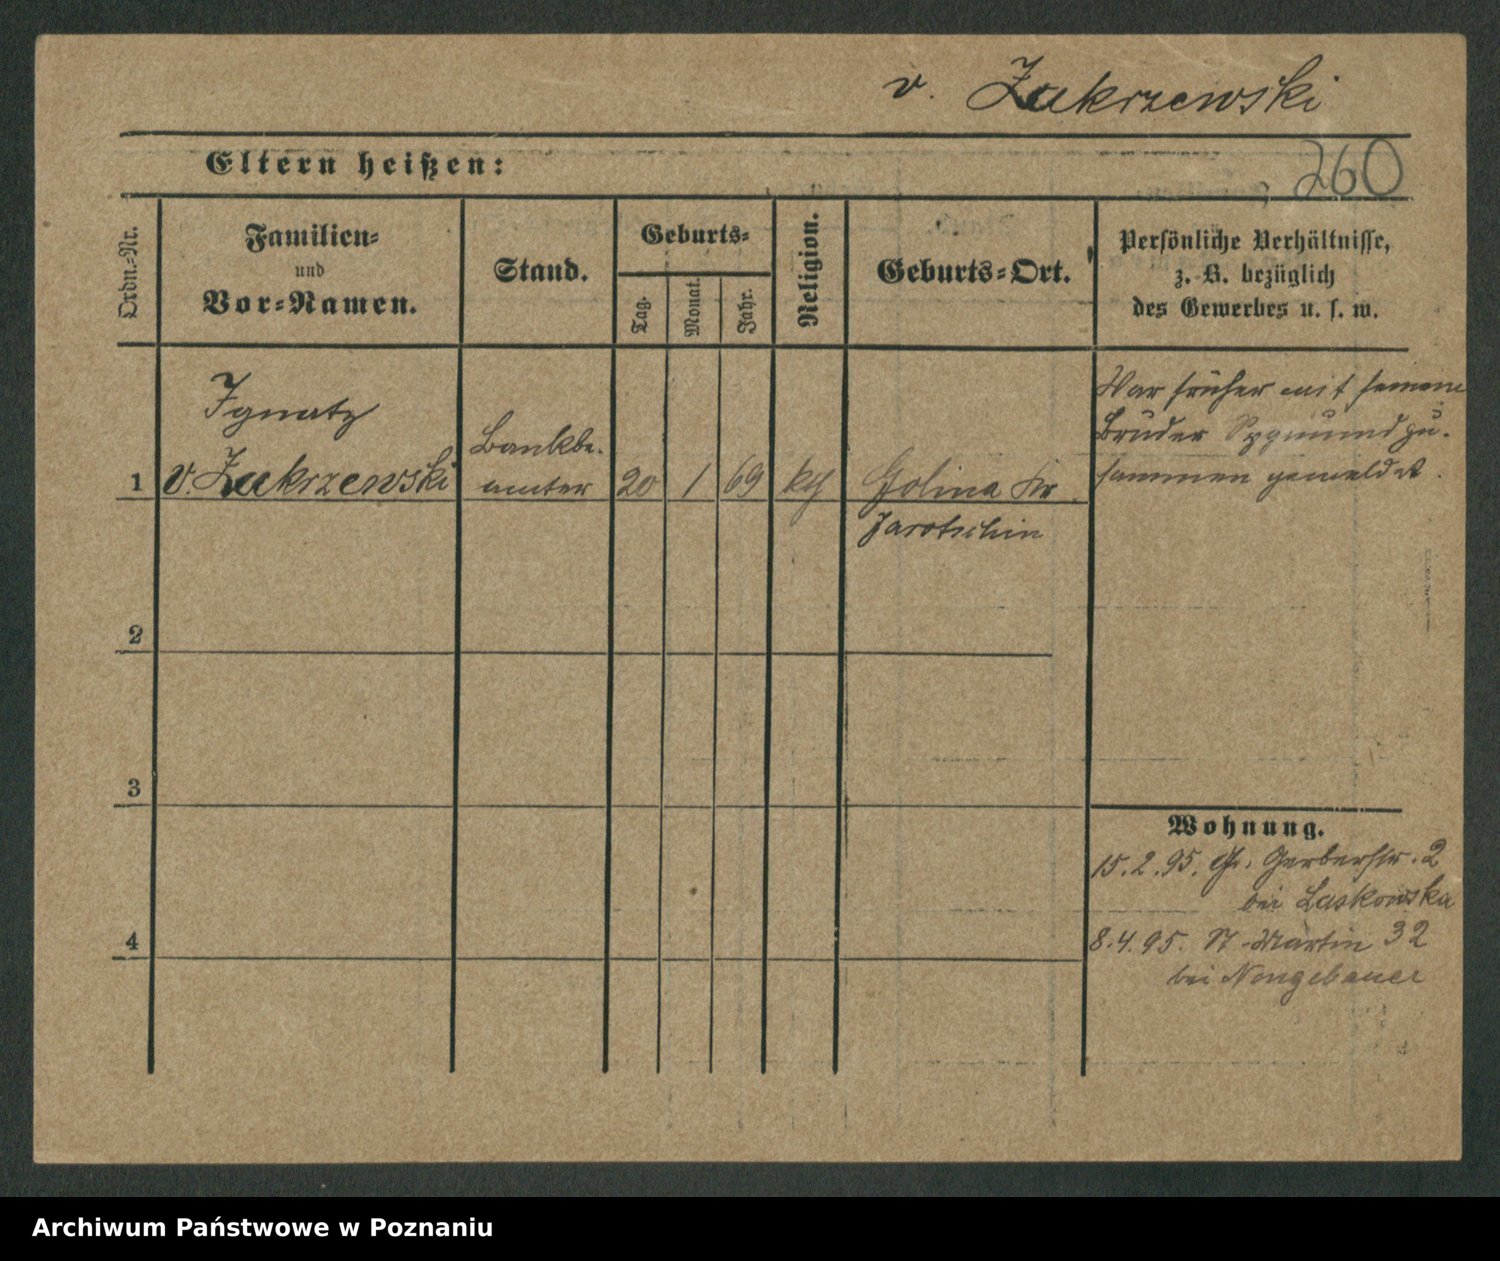 v. Zakrzewski
Eltern heißen:
260
Ordn.=Nr.
Familien=
und
Vor=Namen.
Stand.
Geburts=
Tag.
Monat.
Jahr.
Religion.
Geburts=Ort.
Persönliche Verhältnisse,
z. B. bezüglich
des Gewerbes u. s. w.
Ignatz
1 v. Zakrzewski
Bankbe.
amter
20 1 69
Golina Kr.
Jarotschin
War früher mit seinem
Bruder zu.
sammen gemeldet.
2
3
4
Wohnung.
15.2.95. Gr. Gerberstr. 2
bei Laskowska
8.4.95. St Martin 32
bei
Archiwum Państwowe w Poznaniu